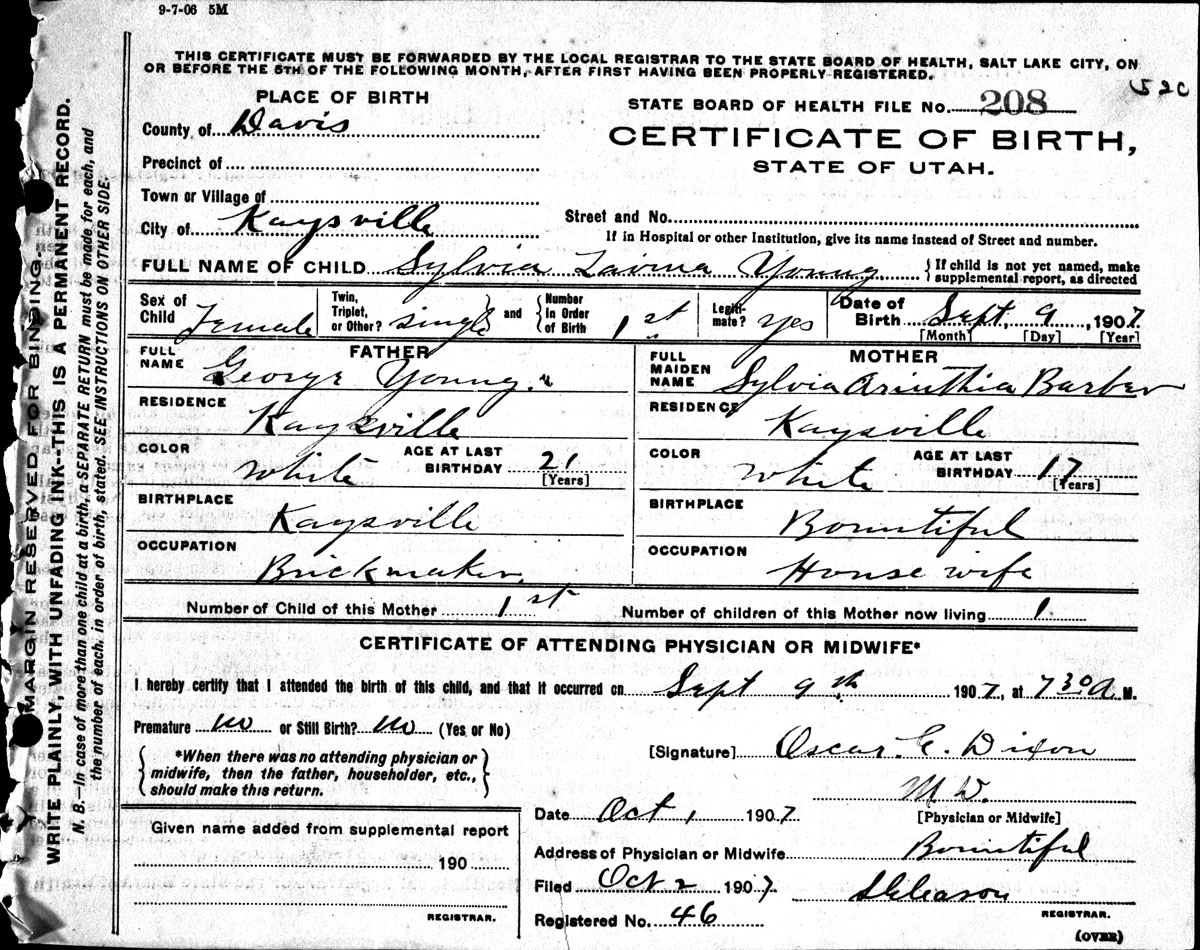 9-7-06 5M
THIS CERTIFICATE MUST BE FORWARDED BY THE LOCAL REGISTRAR TO THE STATE BOARD OF HEALTH, SALT LAKE CITY, ON
OR BEFORE THE 5TH OF THE FOLLOWING MONTH, AFTER FIRST HAVING BEEN PROPERLY REGISTERED.
52C
MARGIN RESERVED FOR BINDING.
WRITE PLAINLY, WITH UNFADING INK--THIS IS A PERMANENT RECORD.
N. B.—In case of more than one child at a birth, a SEPARATE RETURN must be made for each, and
the number of each, in order of birth, stated. SEE INSTRUCTIONS ON OTHER SIDE.
PLACE OF BIRTH
STATE BOARD OF HEALTH FILE No. 208
County of Davis
CERTIFICATE OF BIRTH,
STATE OF UTAH.
Precinct of
Town or Village of
City of Kaysville
Street and No.
If in Hospital or other Institution, give its name instead of Street and number.
FULL NAME OF CHILD Sylvia Young { If child is not yet named, make
supplemental report, as directed
Sex of Child Female Twin, Triplet, or Other? single } and { Number in Order of Birth 1st Legiti-mate? yes Date of Birth Sept. 9, 1907.
[Month] [Day] [Year]
FATHER
FULL NAME George Young.
RESIDENCE Kaysville
COLOR White AGE AT LAST BIRTHDAY 21
[Years]
BIRTHPLACE Kaysville
OCCUPATION Brickmaker.
MOTHER
FULL MAIDEN NAME Sylvia Arinthia Barber
RESIDENCE Kaysville
COLOR White AGE AT LAST BIRTHDAY 17
[Years]
BIRTHPLACE Bountiful
OCCUPATION House wife
Number of Child of this Mother 1st Number of children of this Mother now living 1
CERTIFICATE OF ATTENDING PHYSICIAN OR MIDWIFE*
I hereby certify that I attended the birth of this child, and that it occurred on Sept 9th 1907, at 7 30 A M.
Premature no or Still Birth? no (Yes or No)
{ *When there was no attending physician or
midwife, then the father, householder, etc.,
should make this return. }
[Signature] Oscar C. Dixon
M D.
[Physician or Midwife]
Date Oct 1 1907.
Address of Physician or Midwife Bountiful
Given name added from supplemental report
190
REGISTRAR.
Filed Oct 2 1907. Gleason
REGISTRAR.
Registered No. 46
(OVER)